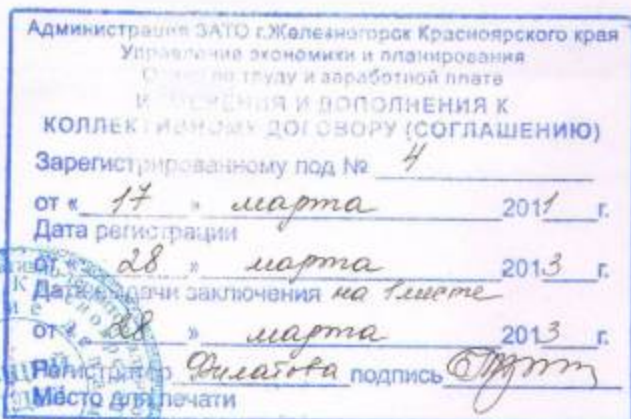 Администрация ЗАТО г.Железногорск Красноярского края
Управление экономики и планирования
Отдел по труду и заработной плате
ИЗМЕНЕНИЯ И ДОПОЛНЕНИЯ К
КОЛЛЕКТИВНОМУ ДОГОВОРУ (СОГЛАШЕНИЮ)
Зарегистрированному под № 4
от « 17 » марта 2011 г.
Дата регистрации
от « 28 » марта 2013 г.
Дата выдачи заключения на 1 листе
от « 28 » марта 2013 г.
Регистратор Филатова подпись
Место для печати